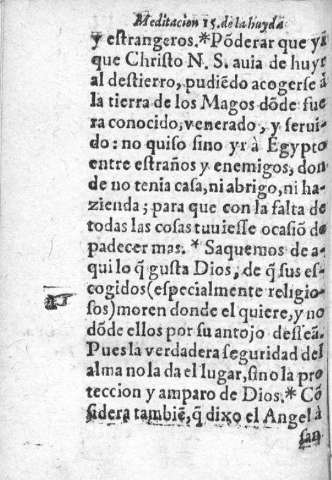 Meditacion 15. de la huyda
y estrangeros.*Põderar que ya
que Christo N. S. auia de huyr
al destierro, pudiẽdo acogerse à
la tierra de los Magos dõde fue
ra conocido, venerado, y serui-
do: no quiso sino yr à Egypto
entre estraños y enemigos, don
de no tenia casa, ni abrigo, ni ha-
zienda; para que con la falta de
todas las cosas tuuiesse ocasiõ de
padecer mas. * Saquemos de a-
qui lo q̃ gusta Dios, de q̃ sus es-
cogidos (especialmente religio-
sos) moren donde el quiere, y no
dõde ellos por su antojo desseã.
Pues la verdadera seguridad del
alma no la da el lugar, sino la pro
teccion y amparo de Dios.* Cõ
sidera tambiẽ, q̃ dixo el Angel à
san